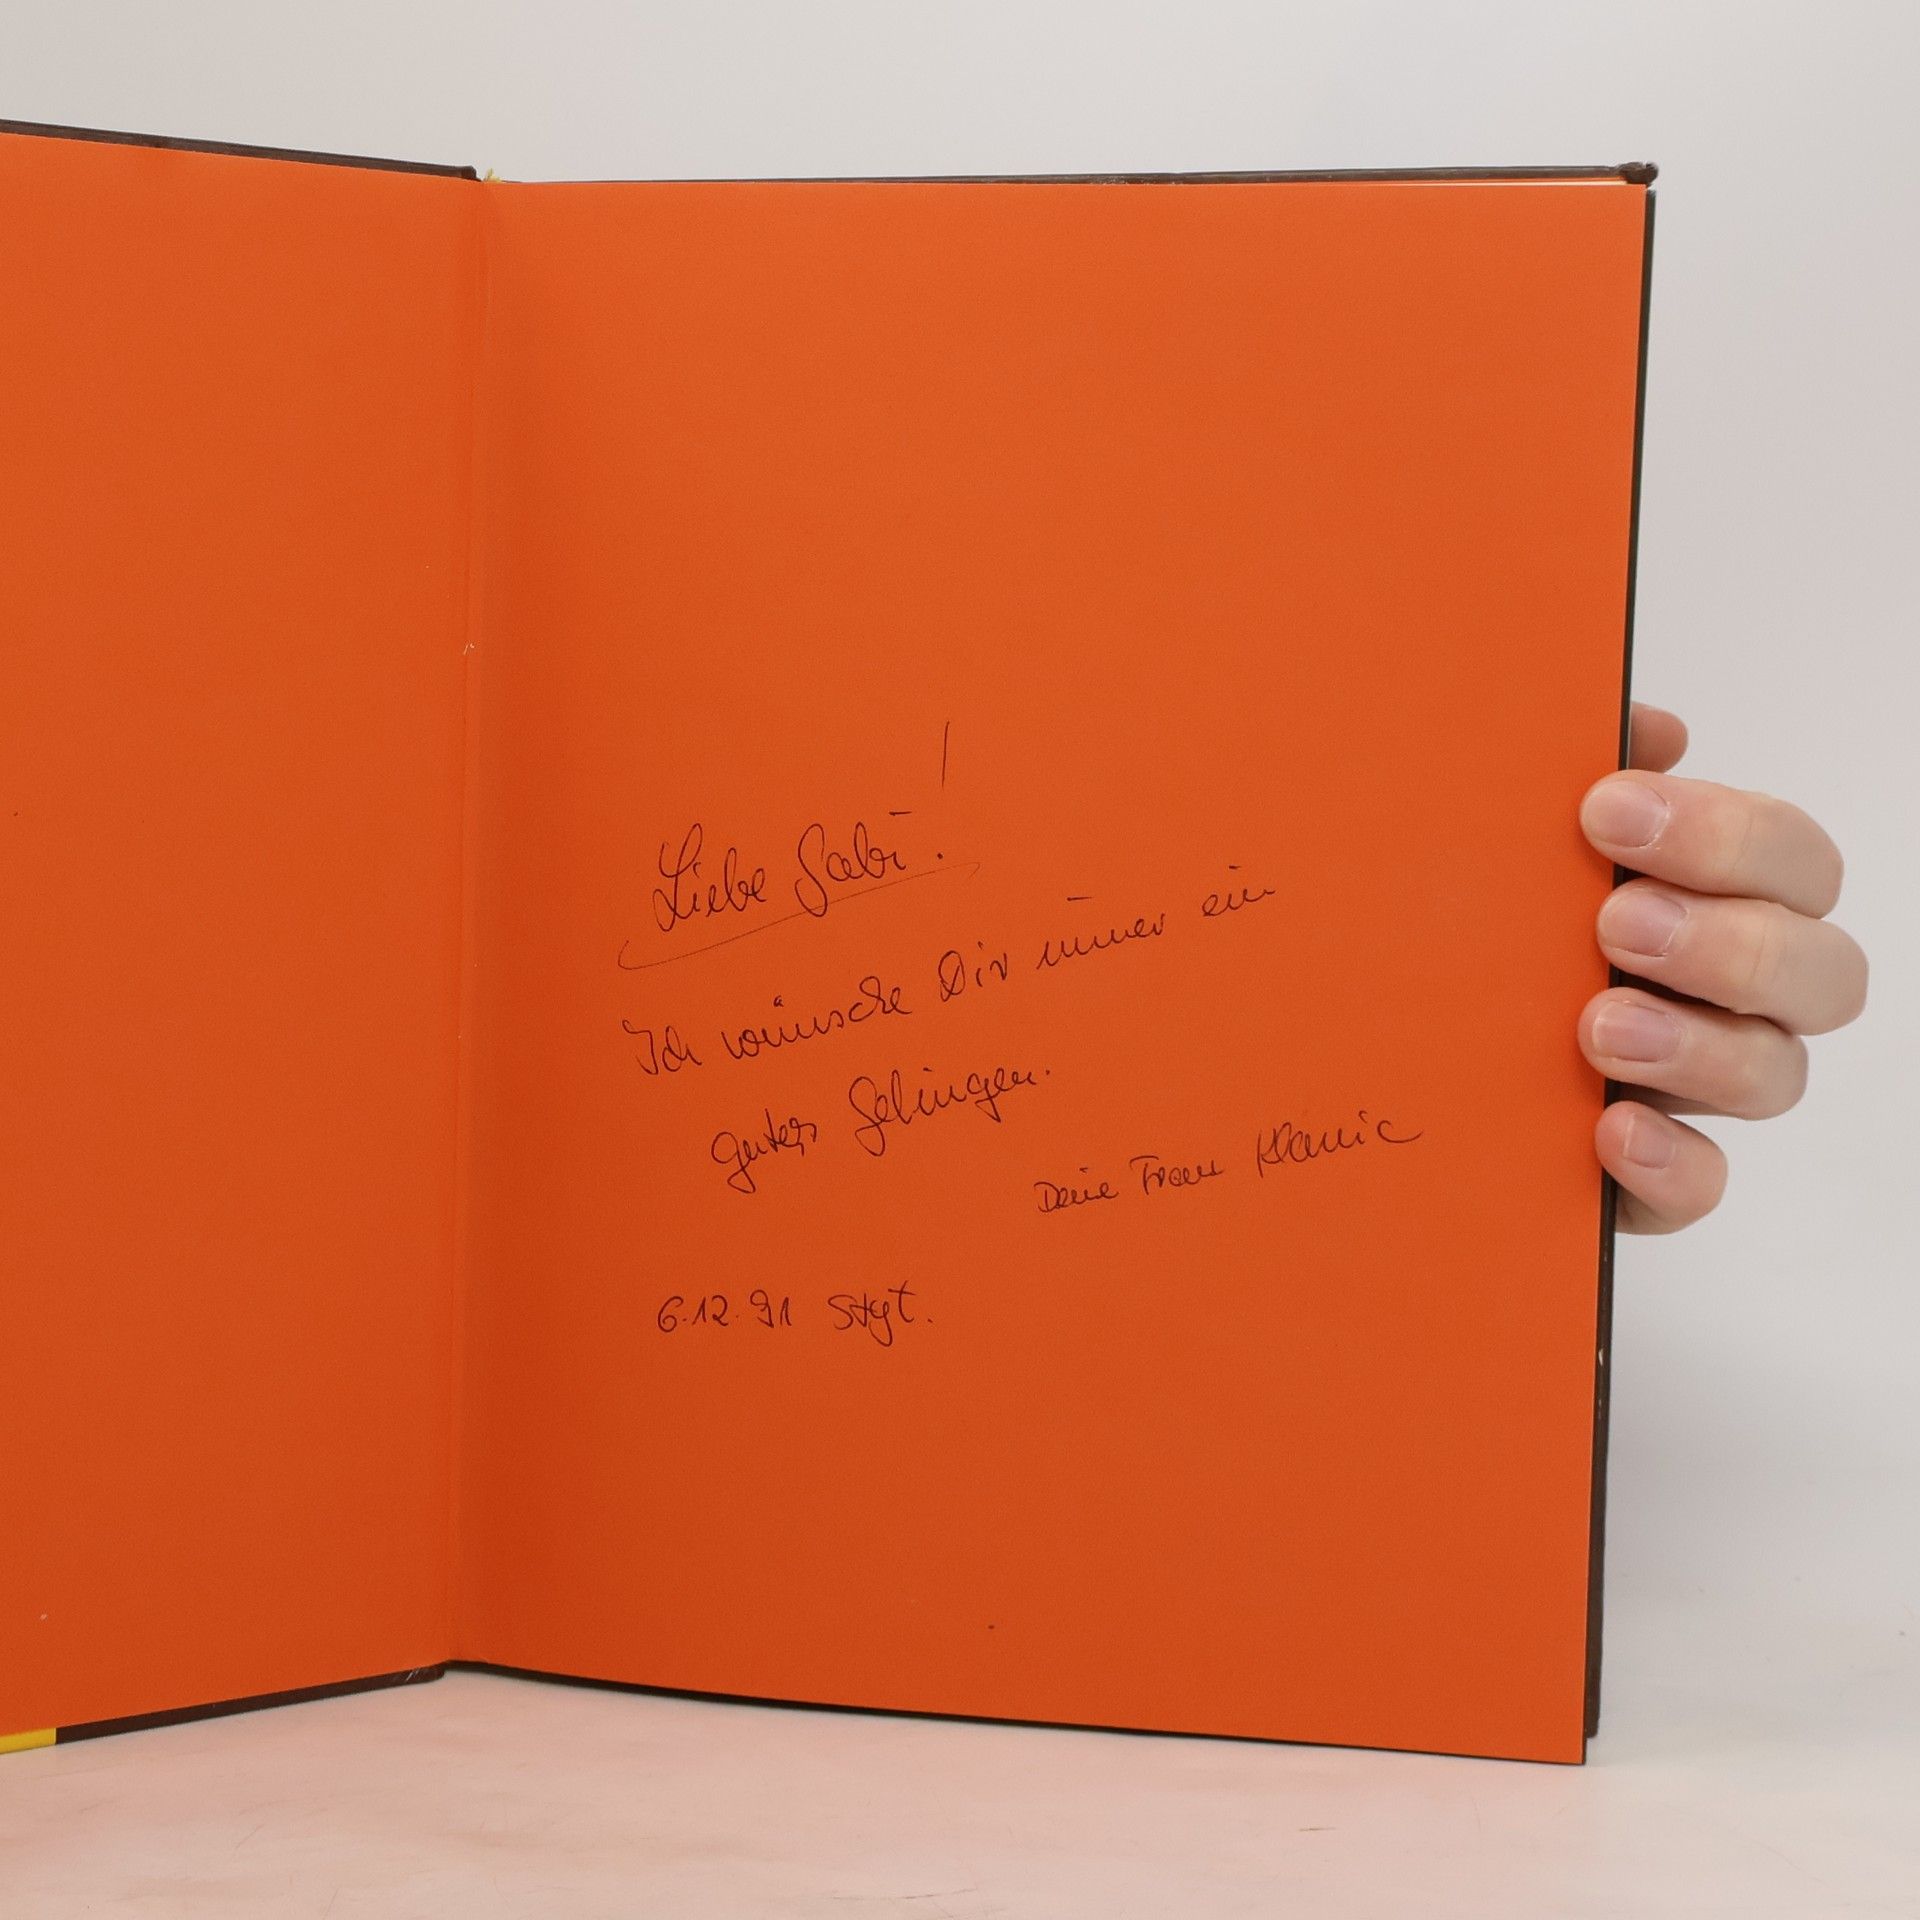 Liebe Gabi!
Ich wünsche Dir immer ein
gutes Gelingen.
Deine Frau Klanic
6.12.91 Stgt.